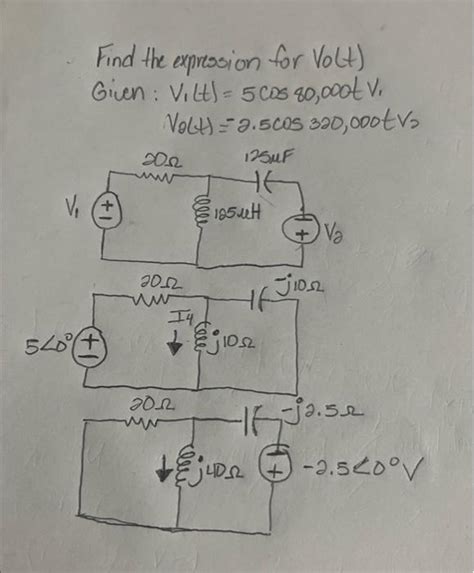 Find the expression for Vo(t)
Given: V₁(t) = 5cos 80,000t V,
V2(t) = -2.5cos 320,000t V2
20Ω 125uF
V₁ + − 125uH − + V2
20Ω -j10Ω
5∠0° + − I4 j10Ω
20Ω -j2.5Ω
j40Ω − + -2.5∠0°V